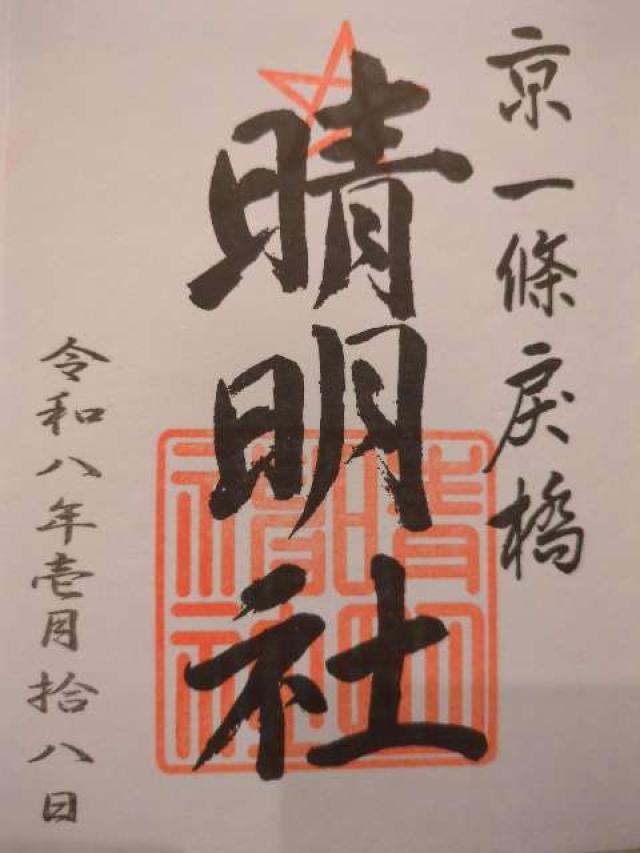 京一條戻橋
晴明社
晴明神社
令和八年壱月拾八日